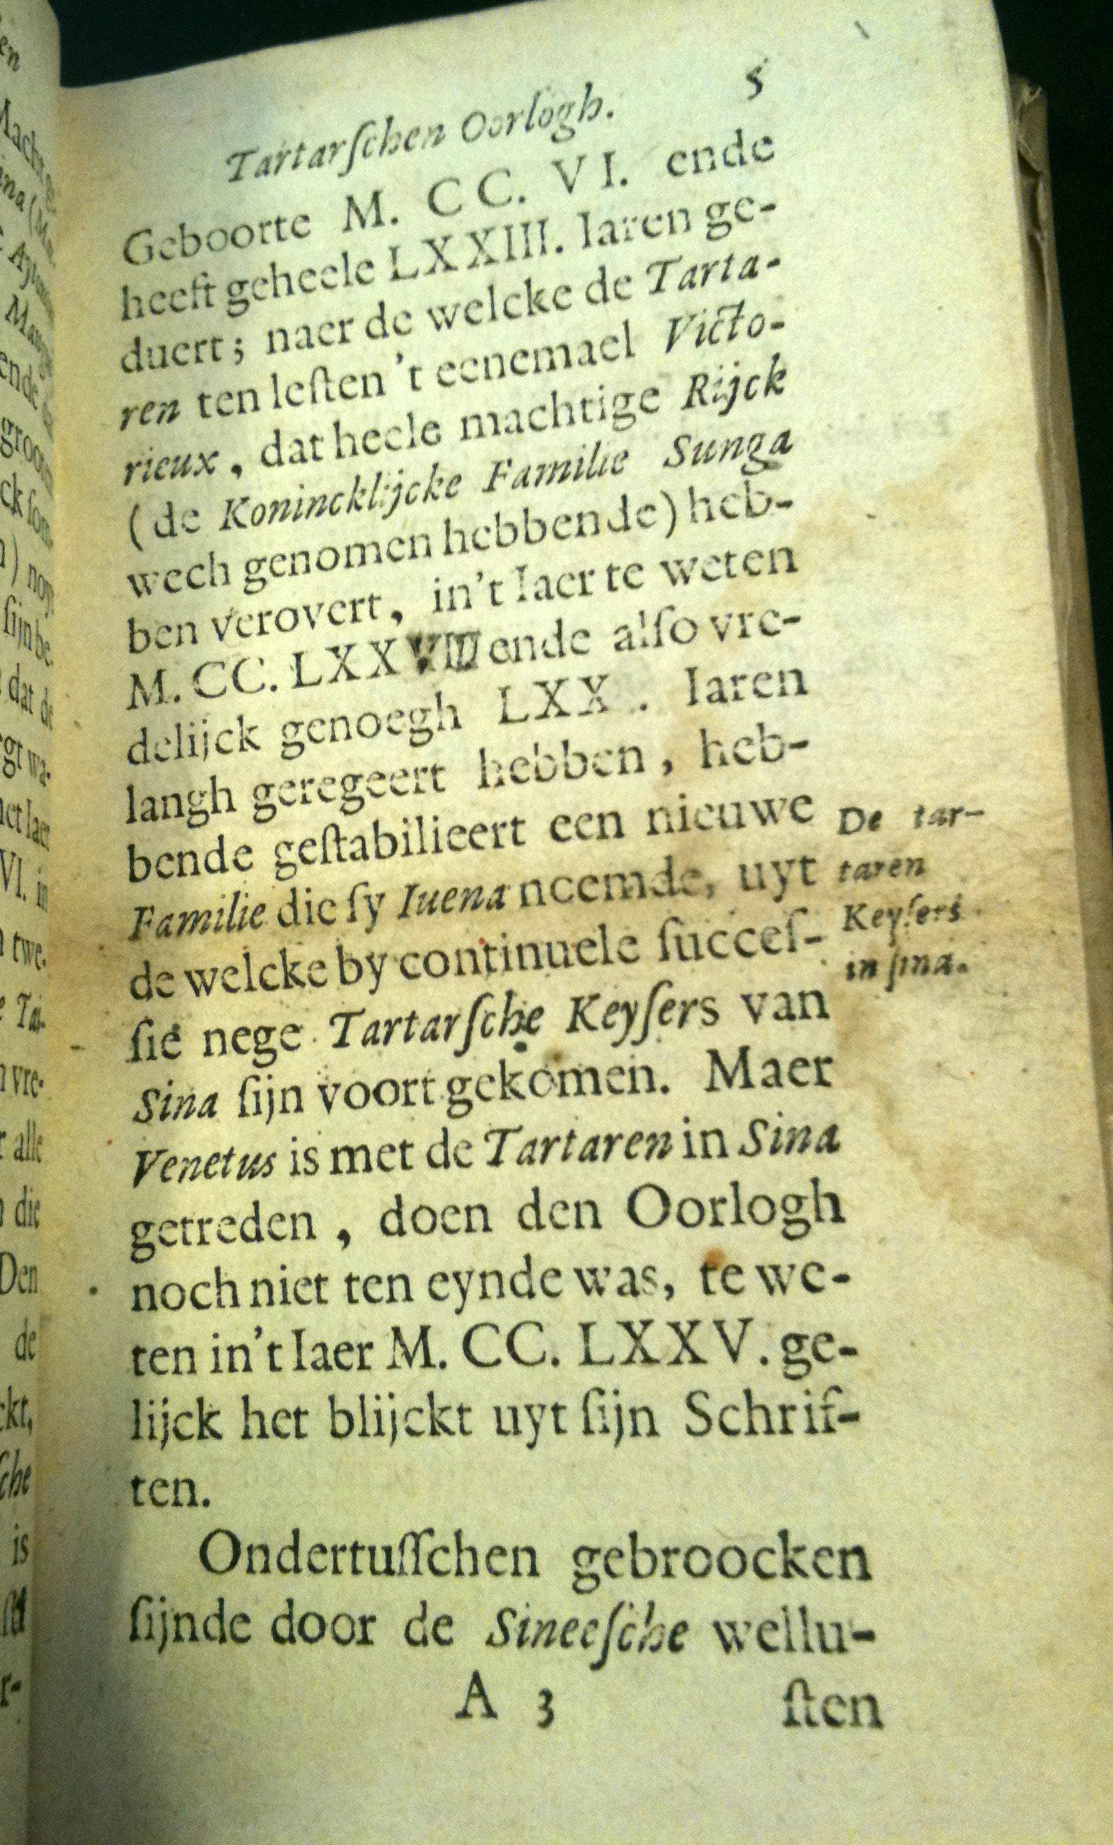 Tartarſchen Oorlogh. 5
Geboorte M. CC. VI. ende
heeft geheele LXXIII. Iaren ge-
duert; naer de welcke de Tarta-
ren ten leſten 't eenemael Victo-
rieux, dat heele machtige Rijck
(de Konincklijcke Familie Sunga
wech genomen hebbende) heb-
ben verovert, in't Iaer te weten
M. CC. LXXVIII ende alſo vre-
delijck genoegh LXX. Iaren
langh geregeert hebben, heb-
bende geſtabilieert een nieuwe
Familie die ſy Iuena neemde, uyt
de welcke by continuele ſucceſ-
ſie nege Tartarſche Keyſers van
Sina ſijn voort gekomen. Maer
Venetus is met de Tartaren in Sina
getreden, doen den Oorlogh
noch niet ten eynde was, te we-
ten in't Iaer M. CC. LXXV. ge-
lijck het blijckt uyt ſijn Schrif-
ten.
Ondertuſſchen gebroocken
ſijnde door de Sineeſche wellu-
A 3 ſten
De tar-
taren
Keyſers
in ſina.
en
ſijn be.
dat de
twe-
vre-
alle
die
Den
de
ckt,
ſche
is
r-